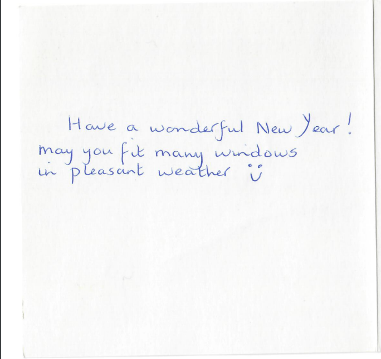 Have a wonderful New Year!
may you fit many windows
in pleasant weather ü